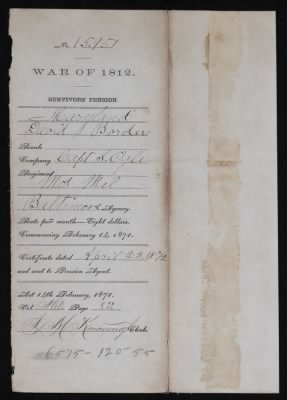 No. 15.951
WAR OF 1812.
SURVIVORS' PENSION.
Maryland
David Border
Rank
Company Capt S. Ogle
Regiment
Md Mil
Baltimore Agency.
Rate per month—Eight dollars.
Commencing February 14, 1871.
Certificate dated April 23. 1872
and sent to Pension Agent.
Act 14th February, 1871.
Vol. Page 82
Clerk.
6575 - 120 55